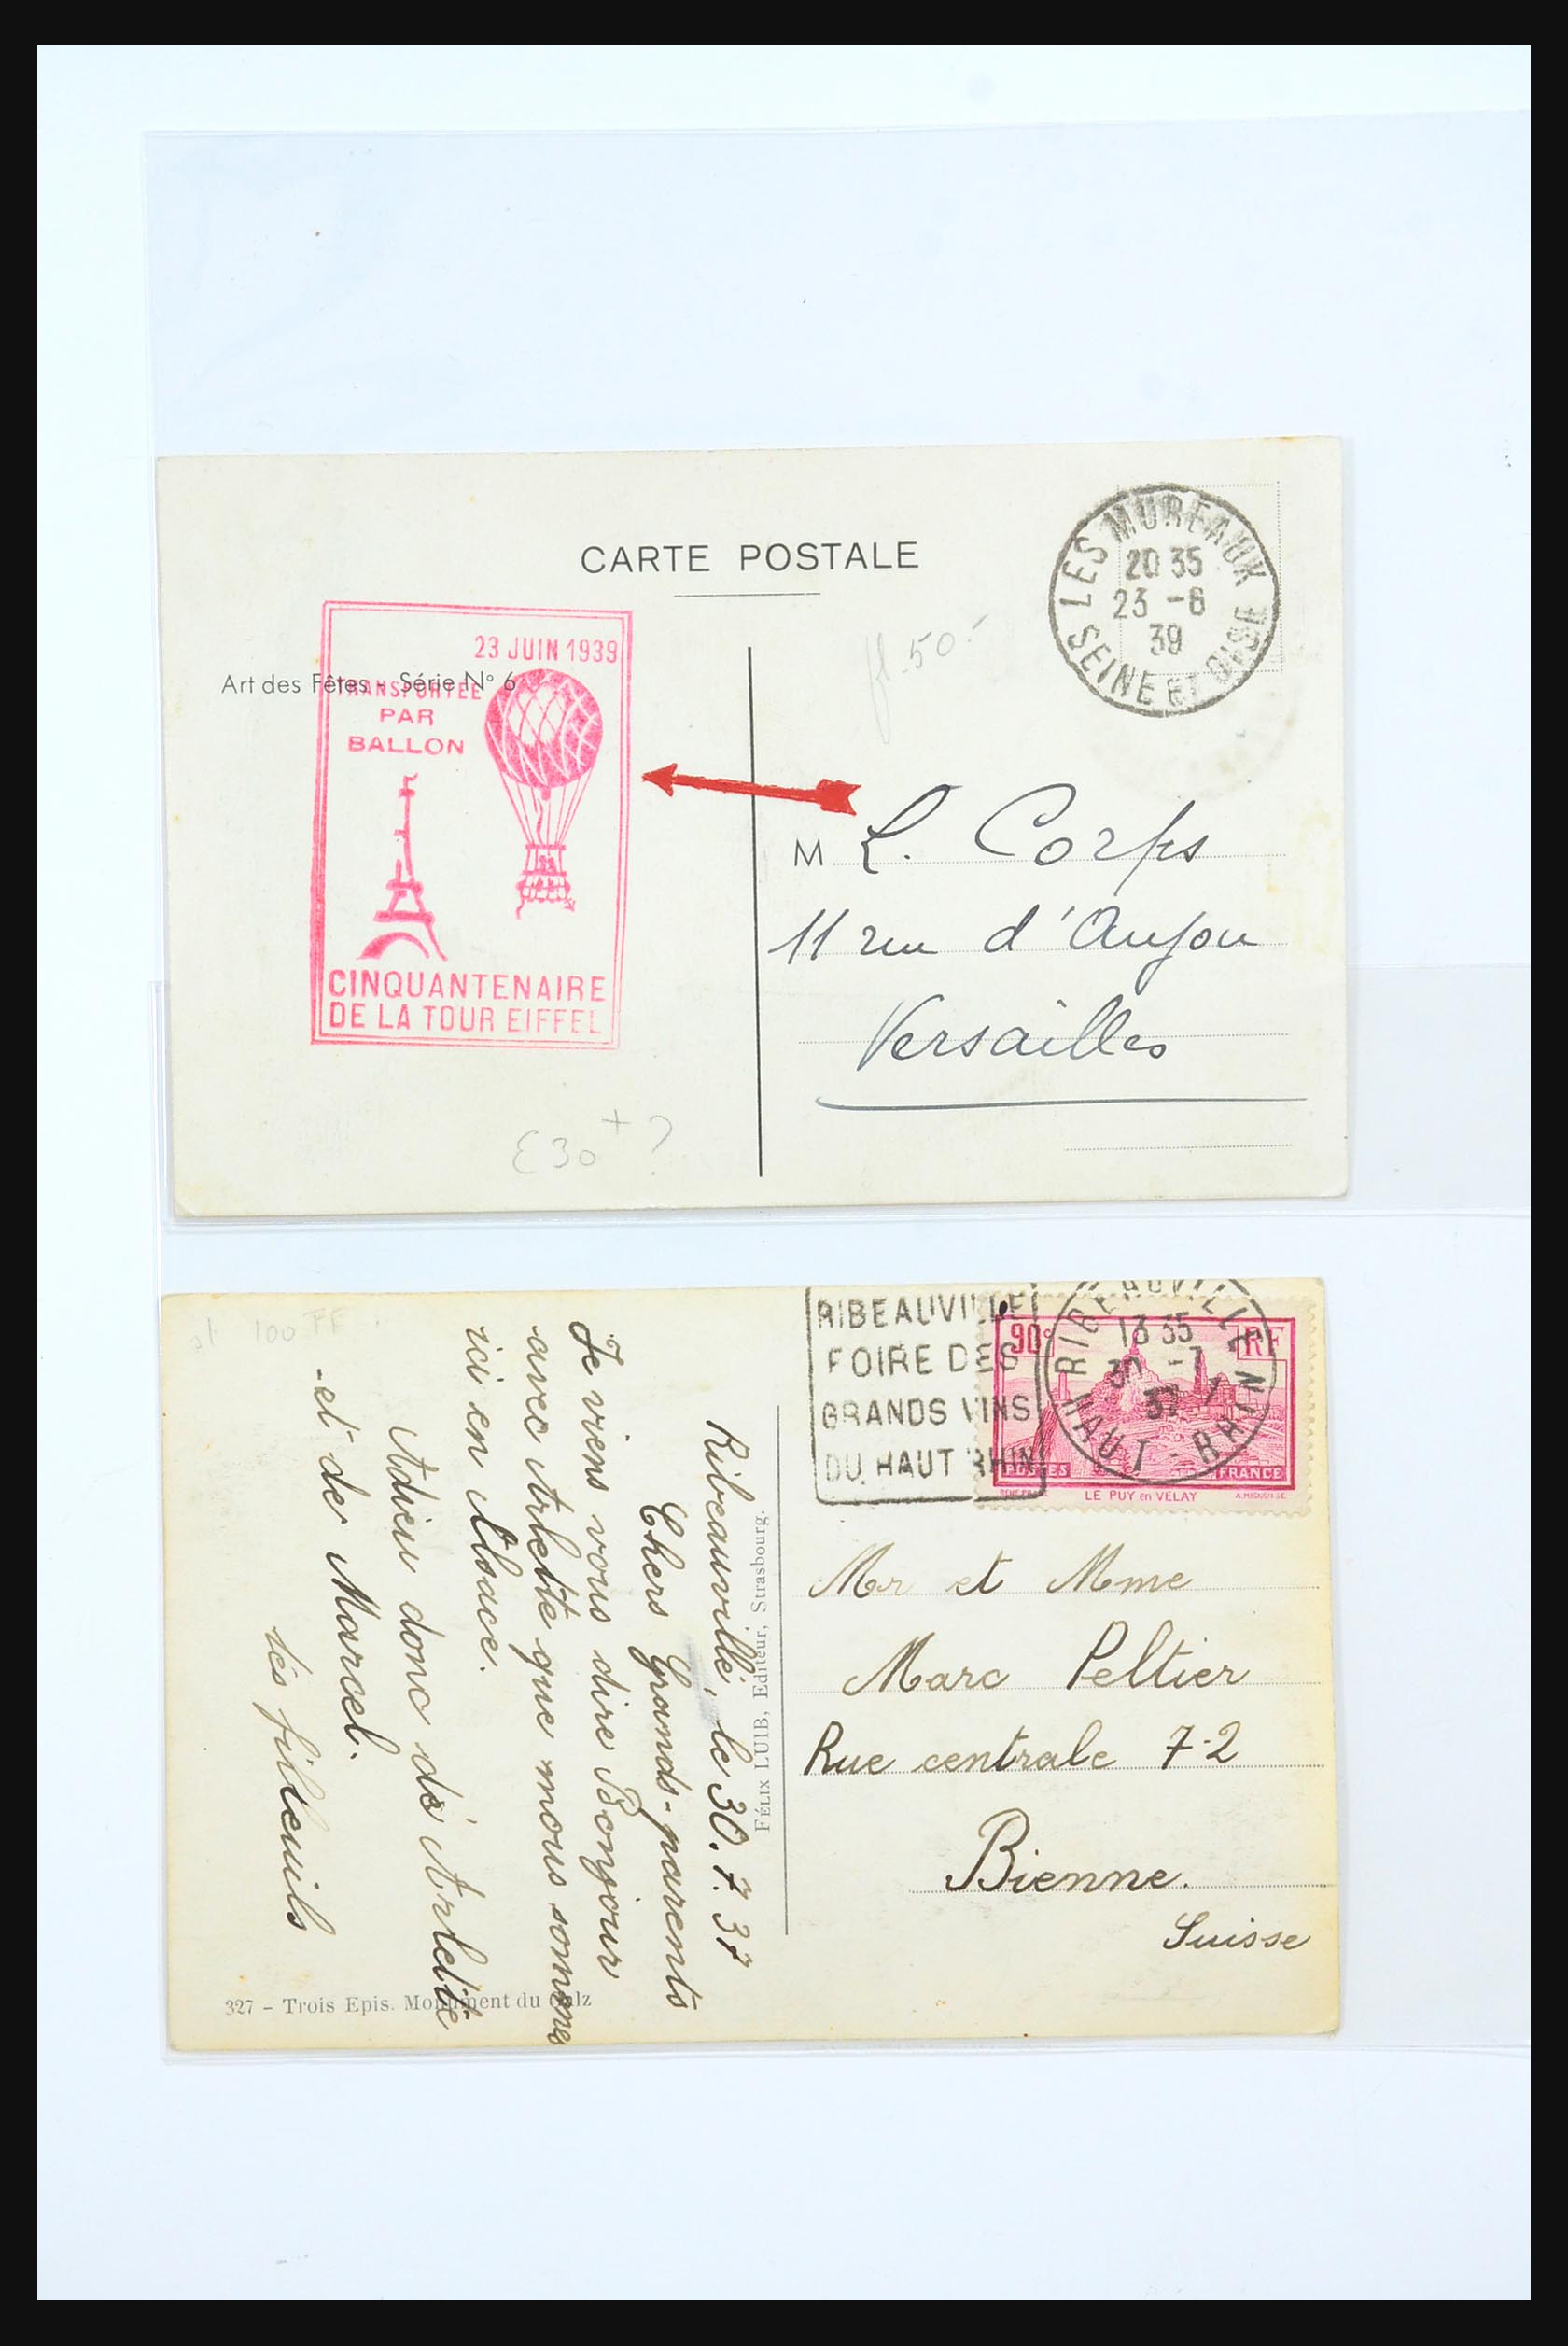 CARTE POSTALE
LES MUREAUX
20 35
23 -6
39
SEINE ET OISE
fl. 50.-
Art des Fêtes - Série N° 6
23 JUIN 1939
TRANSPORTÉE
PAR
BALLON
CINQUANTENAIRE
DE LA TOUR EIFFEL
M L. Corps
11 rue d'Anjou
Versailles
£30 + ?
100 FF
RIBEAUVILLE
FOIRE DES
GRANDS VINS
DU HAUT RHIN
RIBEAUVILLE
13 35
30 -7
37
HAUT-RHIN
90c
RF
POSTES
FRANCE
LE PUY en VELAY
Ribeauvillé, le 30.7.37
Chers Grands-parents
Je viens vous dire Bonjour
avec Arlette que nous sommes
ici en Alsace.
Adieu donc de Arlette
et de Marcel.
tes filleuils
FÉLIX LUIB, Editeur, Strasbourg.
Mr et Mme
Marc Peltier
Rue centrale 72
Bienne.
Suisse
327 - Trois Epis. Monument du Galz